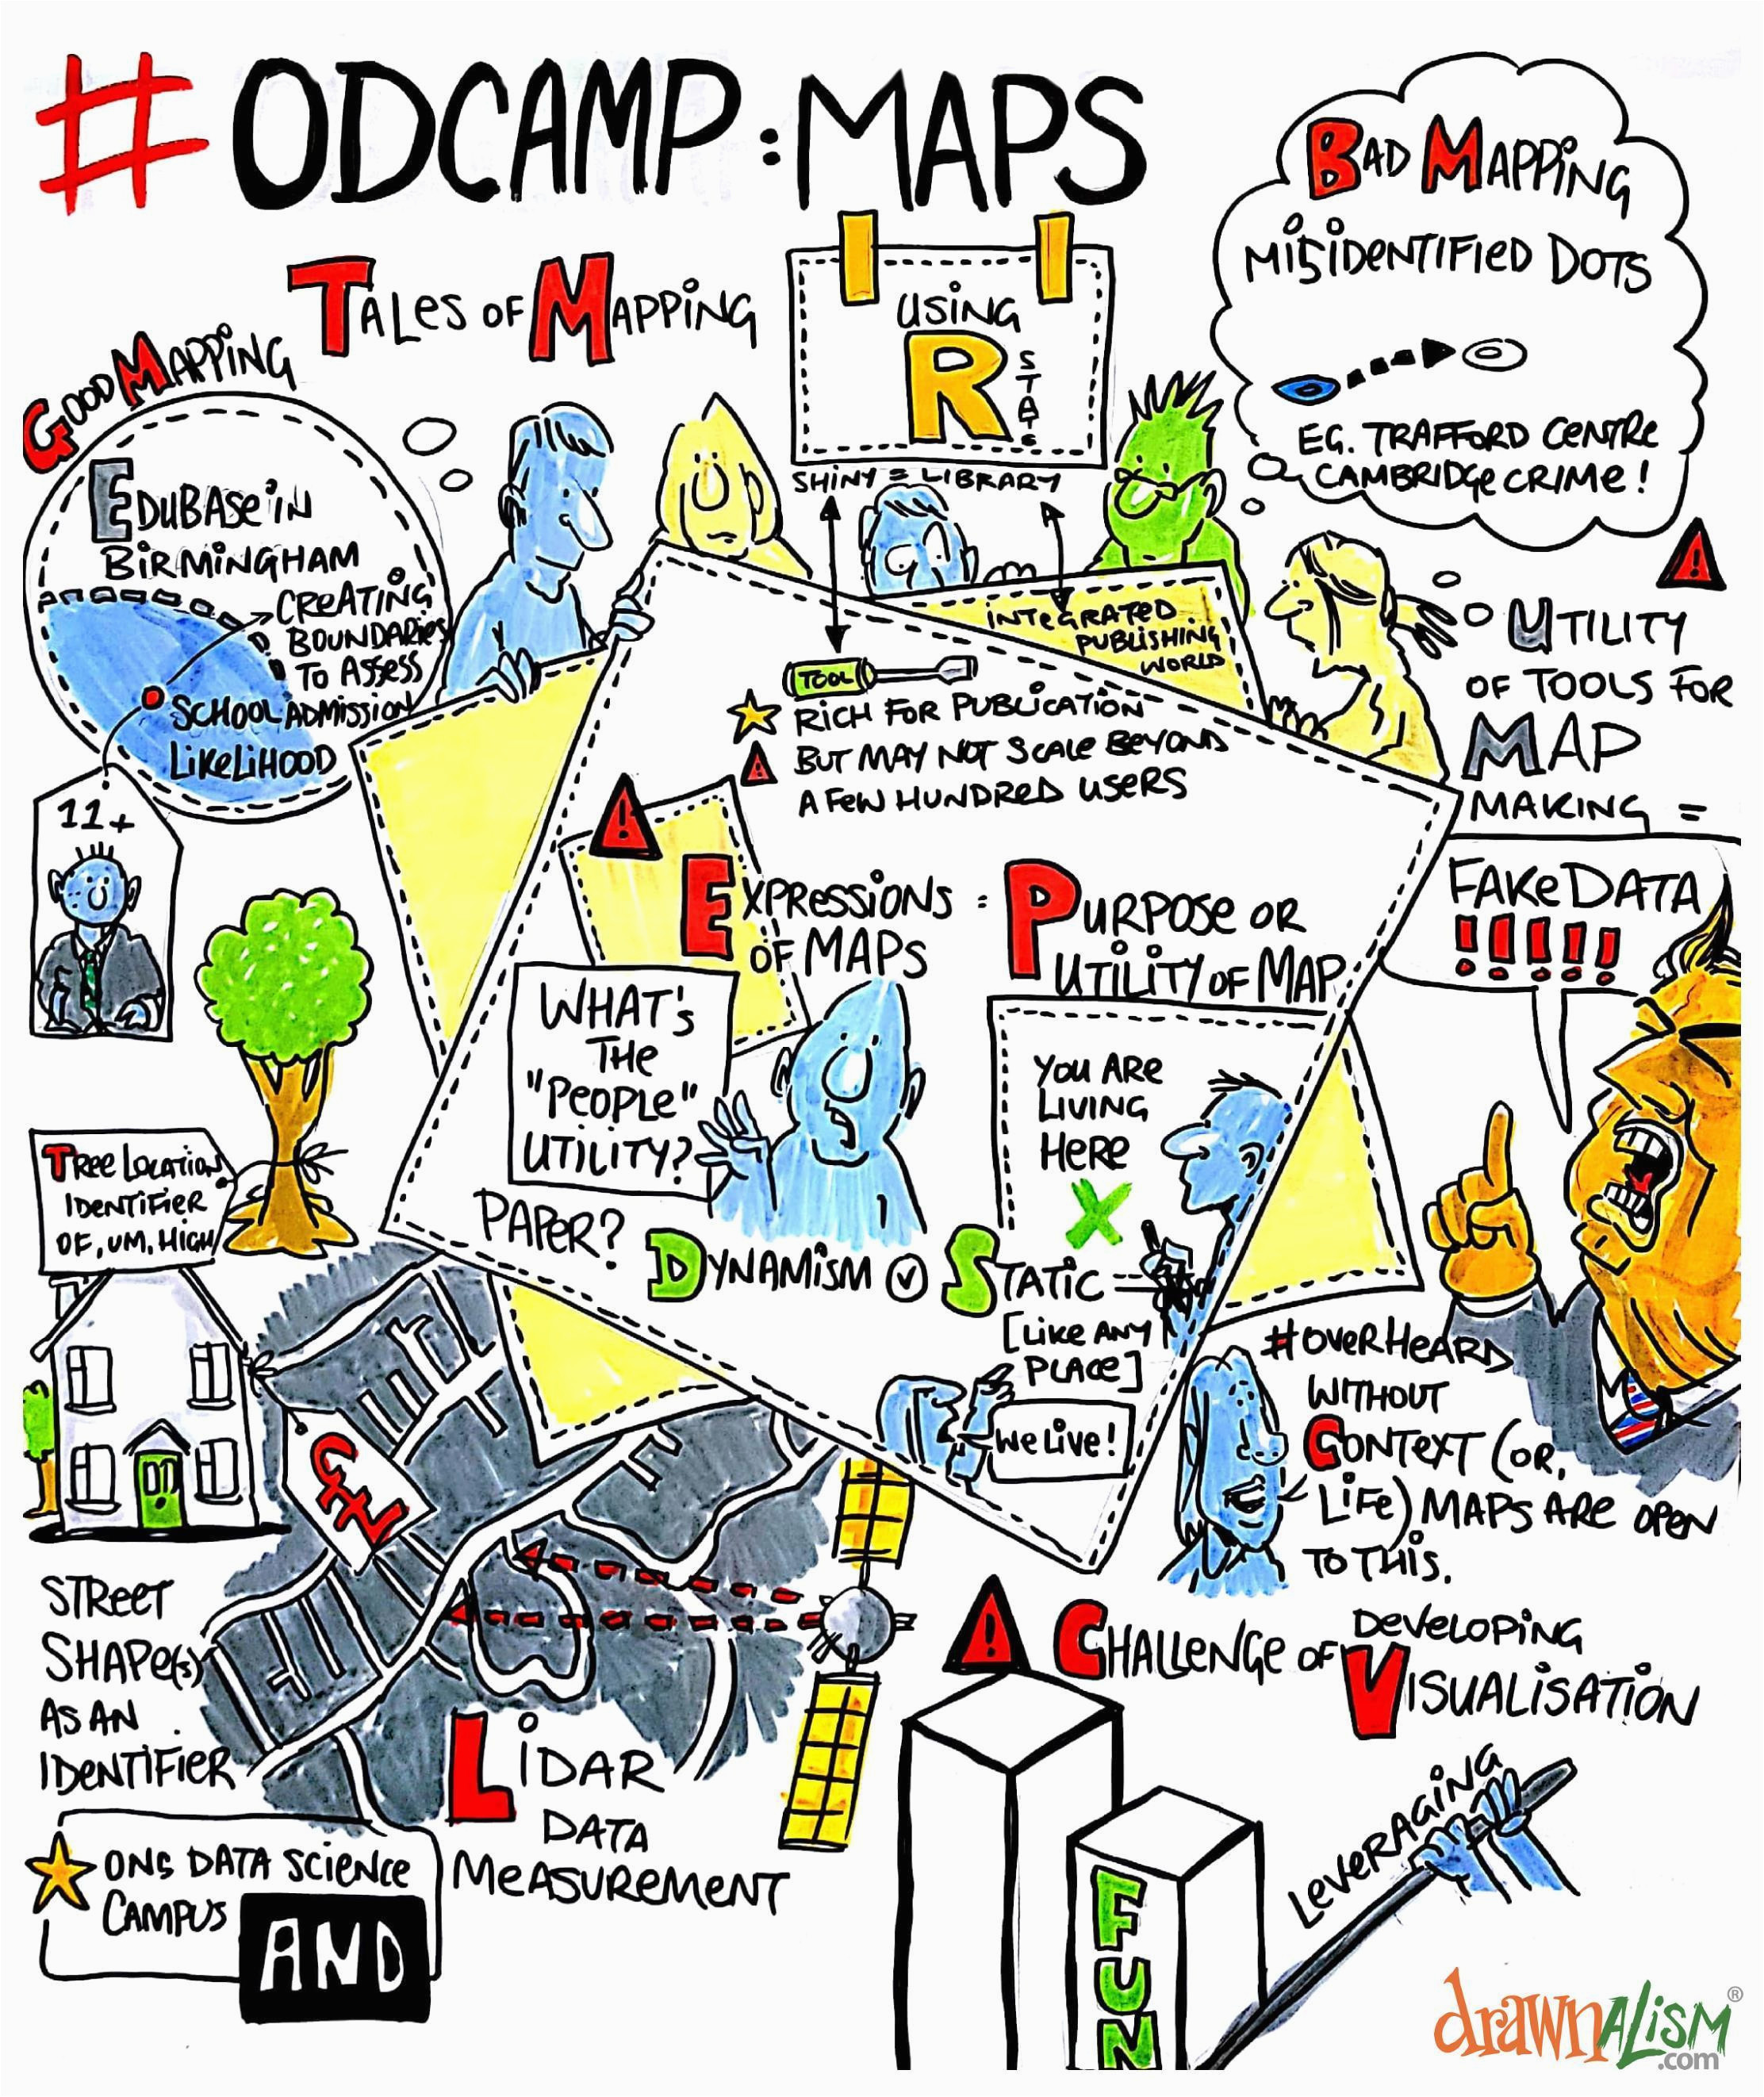 #ODCAMP:MAPS
TALES OF MAPPING
GOOD MAPPING
EDUBASE IN
BIRMINGHAM
CREATING
BOUNDARIES
TO ASSESS
SCHOOL ADMISSION
LIKELIHOOD
11+
USING
R
STATS
SHINY = LIBRARY
INTEGRATED
PUBLISHING
WORLD
TOOL
RICH FOR PUBLICATION
BUT MAY NOT SCALE BEYOND
A FEW HUNDRED USERS
BAD MAPPING
MISIDENTIFIED DOTS
EG. TRAFFORD CENTRE
CAMBRIDGE CRIME!
!
UTILITY
OF TOOLS FOR
MAP
MAKING =
FAKE DATA
!!!!!
!
EXPRESSIONS :
OF MAPS
PURPOSE OR
UTILITY OF MAP
WHAT'S
THE
"PEOPLE"
UTILITY?
PAPER?
YOU ARE
LIVING
HERE
X
DYNAMISM V STATIC =
[LIKE ANY
PLACE]
WE LIVE!
#OVERHEARD
WITHOUT
CONTEXT (OR,
LIFE) MAPS ARE OPEN
TO THIS.
TREE LOCATION
IDENTIFIER
OF, UM, HIGH
£
STREET
SHAPE(S)
AS AN
IDENTIFIER
ONS DATA SCIENCE
CAMPUS
AND
LIDAR
DATA
MEASUREMENT
!
CHALLENGE OF DEVELOPING
VISUALISATION
LEVERAGING
FUN
drawnalism®
.com